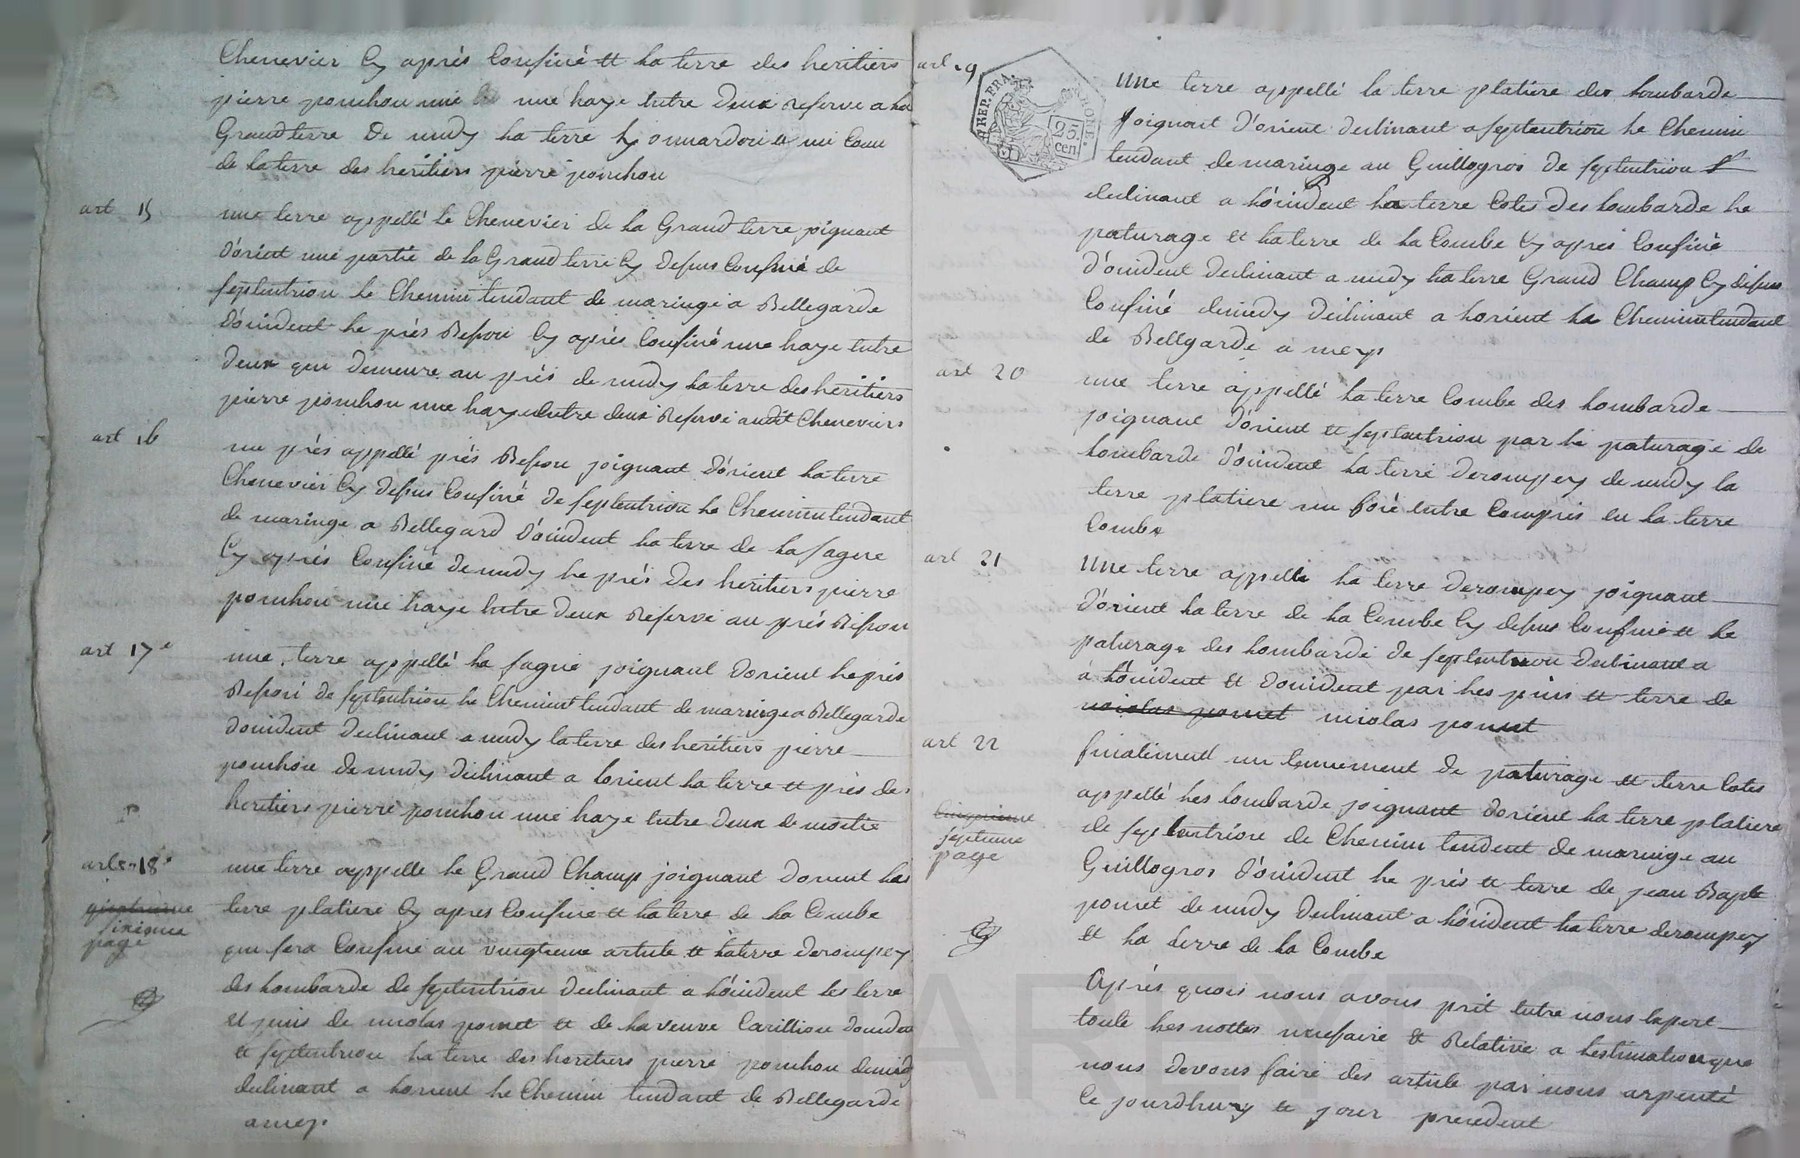 Chenevier Cy après Confiné et la terre des heritiers
pierre ponchon une haye entre deux reservé a la
Grand terre de midy la terre
de la terre des heritiers pierre ponchon
art 15
une terre appellé le Chenevier de la Grand terre joignant
d'orient une partie de la Grand terre Cy depus Confiné de
septentrion le Chemin tendant de maringe a Bellegarde
d'oxident le près Besson Cy après Confiné une haye entre
deux qui demeure au près de midy la terre des heritiers
pierre ponchon une haye entre deux Reservé audit Cheneviers
art 16
un près appellé près Besson joignant d'orient la terre
Chenevier Cy depus Confiné de septentrion le Chemin tendant
de maringe a Bellegard d'oxident la terre de la fagere
Cy après Confiné de midy le près des heritiers pierre
ponchon une haye entre deux Reservé au près Besson
art 17e
une terre appellé la fagne joignant dorient le près
Besson de septentrion le Chemin tendant de maringe a Bellegarde
doxident declinant a midy la terre des heritiers pierre
ponchon de midy declinant a lorient la terre et près des
heritiers pierre ponchon une haye entre deux de moitié
art 18e
sixieme
page
une terre appelle le Grand Champ joignant dorient la
terre platiere Cy apres Confiné et la terre de la Combe
qui sera Confiné au vingtieme article et la terre derompey
des lombarde de septentrion declinant a loxident les terre
et pins de nicolas ponet et de la veuve Carillion doxident
et septentrion la terre des heritiers pierre ponchon de midy
declinant a lorient le Chemin tendant de Bellegarde
a mey.
art. 19
REP. FRA.
25
cen
une terre appellé la terre platiere des lombarde
joignant d'orient declinant a septentrion le Chemin
tendant de maringe au Guillogros de septentrion
declinant a loxident la terre Cotes des lombarde le
paturage et la terre de la Combe Cy après Confiné
d'oxident declinant a midy la terre Grand Champ Cy depus
Confiné de midy declinant a lorient le Chemin tendant
de Bellgarde a mey.
art 20
une terre appellé la terre Combe des lombarde
joignant d'orient et septentrion par le paturage de
lombarde d'oxident la terre derompey de midy la
terre platiere un entre Compris en la terre
Combe
art 21
une terre appellé la terre derompey joignant
d'orient la terre de la Combe Cy depus Confiné et le
paturage des lombarde de septentrion declinant a
a loxident et doxident par les pins et terre de
nicolas ponet nicolas ponet
art 22
septieme
page
finalement un tenement de paturage et terre Cotes
appellé les lombarde joignant dorient la terre platiere
de septentrion de Chemin tendent de maringe au
Guillogros d'oxident le près et terre de jean Bapte
ponet de midy declinant a loxident la terre derompey
et la terre de la Combe
Après quois nous avons prit entre nous Expert
toute les nottes necesaire et Relative a lestimation que
nous devons faire des article par nous arpenté
Ce jourdhuy et jour precedent